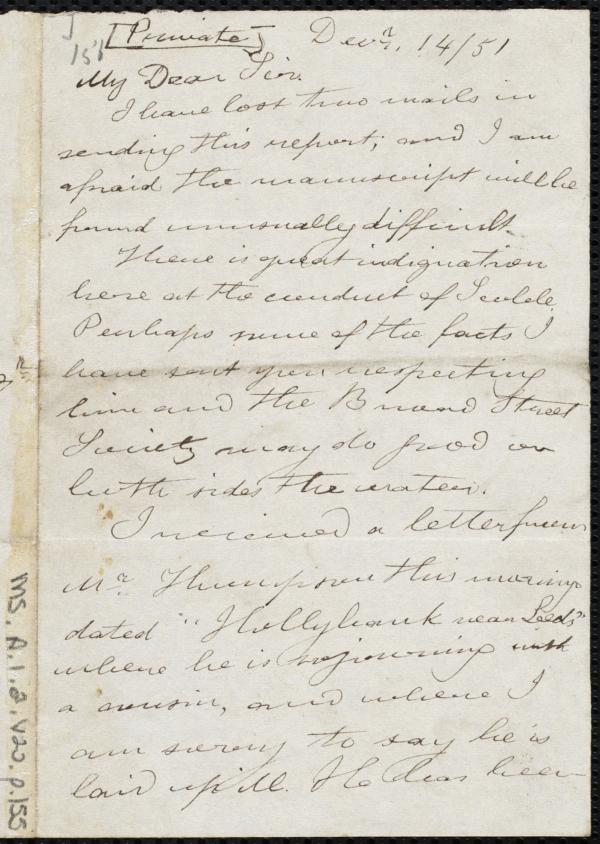 [Private] Decr. 14/51
155
My Dear Sir.
I have lost two mails in
sending this report; and I am
afraid the manuscript will be
found unusually difficult.
There is great indignation
here at the conduct of Scoble.
Perhaps some of the facts I
have sent you respecting
him and the Broad Street
Society may do good on
both sides the water.
I received a letter from
Mr. Thompson this morning
dated "Hollybank near Leeds"
where he is sojourning with
a cousin, and where I
am sorry to say he is
laid up ill. He has been
MS. A.1.2.V20.p.155